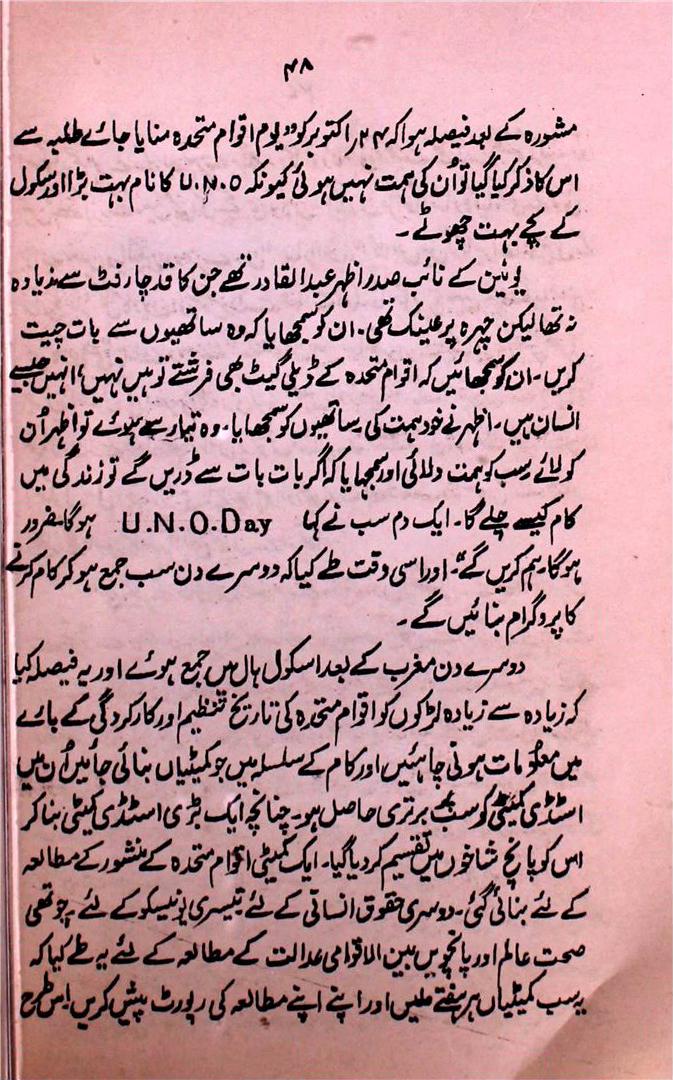 ۴۸
مشورہ کے بعد فیصلہ ہوا کہ ۲۴؍ اکتوبر کو ”یوم اقوام متحدہ منایا جائے طلبہ سے
اس کا ذکر کیا گیا تو اُن کی ہمت نہیں ہوئی کیونکہ U.N.O کا نام بہت بڑا اور سکول
کے بچے بہت چھوٹے۔
یونین کے نائب صدر اظہر عبدالقادر تھے جن کا قد چار فٹ سے زیادہ
نہ تھا لیکن چہرہ پر عینک تھی۔ ان کو سمجھایا کہ وہ ساتھیوں سے بات چیت
کریں۔ ان کو سمجھائیں کہ اقوام متحدہ کے ڈیلی گیٹ بھی فرشتے تو ہیں نہیں، انہیں جیسے
انسان ہیں۔ اظہر نے خود ہمت کی ساتھیوں کو سمجھایا۔ وہ تیار سے ہوئے تو اظہر اُن
کو لائے سب کو ہمت دلائی اور سمجھایا کہ اگر بات بات سے ڈریں گے تو زندگی میں
کام کیسے چلے گا۔ ایک دم سب نے کہا U.N.O.Day ہوگا۔ ضرور
ہوگا۔ ہم کریں گے“۔ اور اسی وقت طے کیا کہ دوسرے دن سب جمع ہو کر کام کرنے
کا پروگرام بنائیں گے۔
دوسرے دن مغرب کے بعد اسکول ہال میں جمع ہوئے اور یہ فیصلہ کیا
کہ زیادہ سے زیادہ لڑکوں کو اقوام متحدہ کی تاریخ تنظیم اور کارکردگی کے بارے
میں معلومات ہونی چاہئیں اور کام کے سلسلہ میں جو کمیٹیاں بنائی جائیں اُن میں
اسٹڈی کمیٹی کو سب پر برتری حاصل ہو۔ چنانچہ ایک بڑی اسٹڈی کمیٹی بنا کر
اس کو پانچ شاخوں میں تقسیم کر دیا گیا۔ ایک کمیٹی اقوام متحدہ کے منشور کے مطالعہ
کے لئے بنائی گئی۔ دوسری حقوق انسانی کے لئے تیسری یونیسکو کے لئے چوتھی
صحت عالم اور پانچویں بین الاقوامی عدالت کے مطالعہ کے لئے یہ طے کیا کہ
یہ سب کمیٹیاں ہر ہفتے ملیں اور اپنے اپنے مطالعہ کی رپورٹ پیش کریں اس طرح